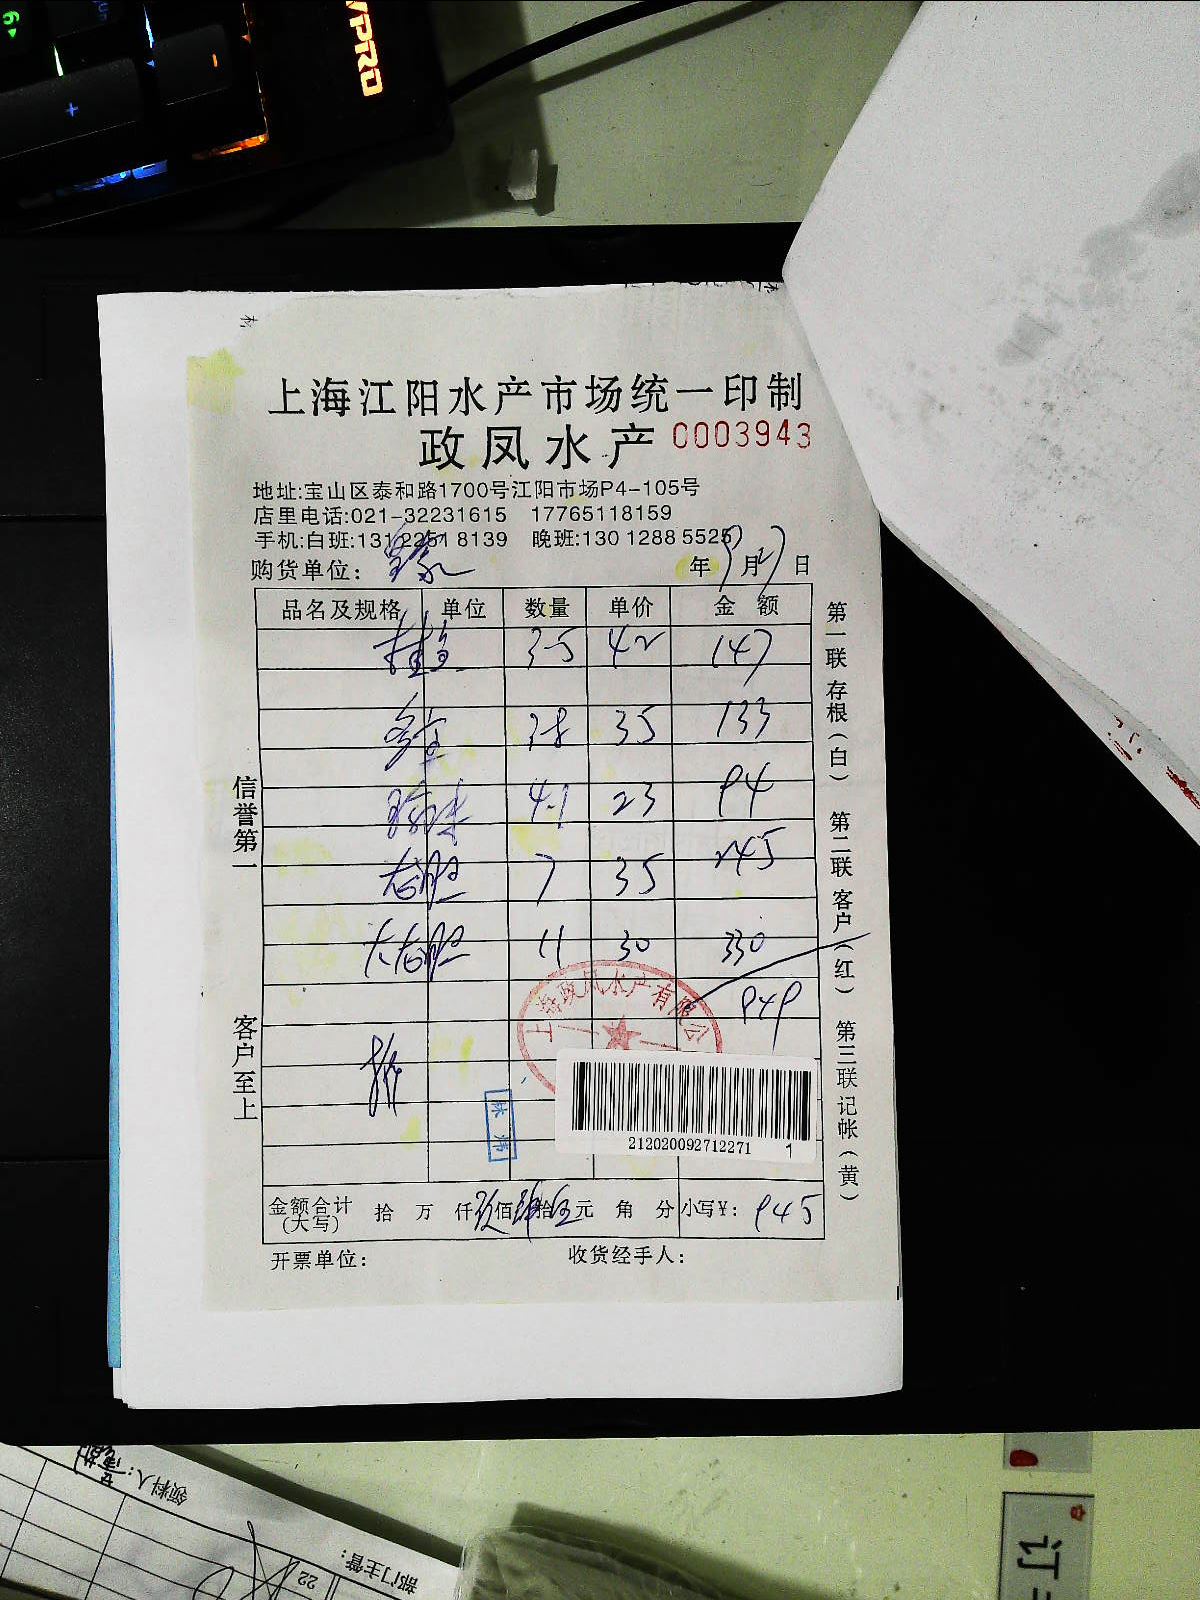 PRO
上海江阳水产市场统一印制
政凤水产 0003943
地址:宝山区泰和路1700号江阳市场P4-105号
店里电话:021-32231615 17765118159
手机:白班:131 2251 8139 晚班:130 1288 5525
购货单位: 年 9 月 27 日
品名及规格 单位 数量 单价 金额
桂鱼 3.5 42 147
多宝 3.8 35 133
4.1 23 94
7 35 245
11 30 330
949
上海政凤水产有限公
212020092712271 1
金额合计(大写) 拾 万 仟 玖 佰 肆 拾 伍 元 角 分 小写¥: 945
开票单位: 收货经手人:
信誉第一
客户至上
第一联 存根(白) 第二联 客户(红) 第三联 记帐(黄)
领料人:
部门主管:
22
订